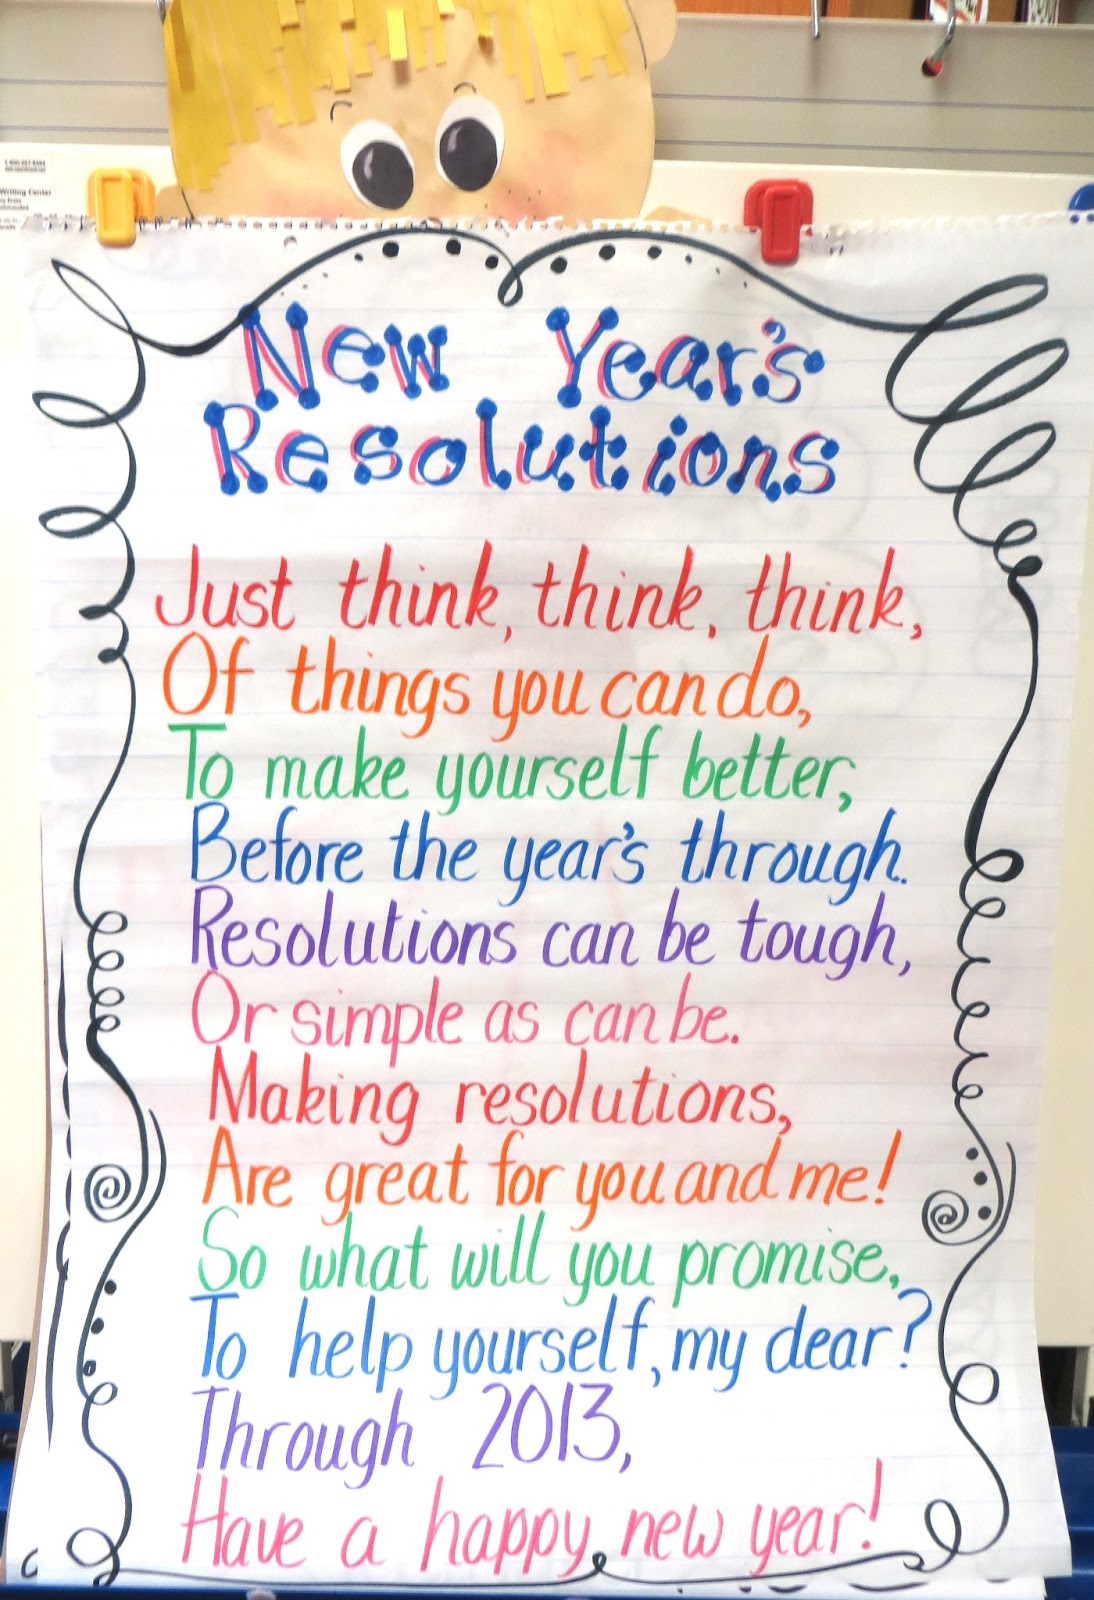 Writing Center
New Year's
Resolutions
Just think, think, think,
Of things you can do,
To make yourself better,
Before the year's through.
Resolutions can be tough,
Or simple as can be.
Making resolutions,
Are great for you and me!
So what will you promise,
To help yourself, my dear?
Through 2013,
Have a happy new year!